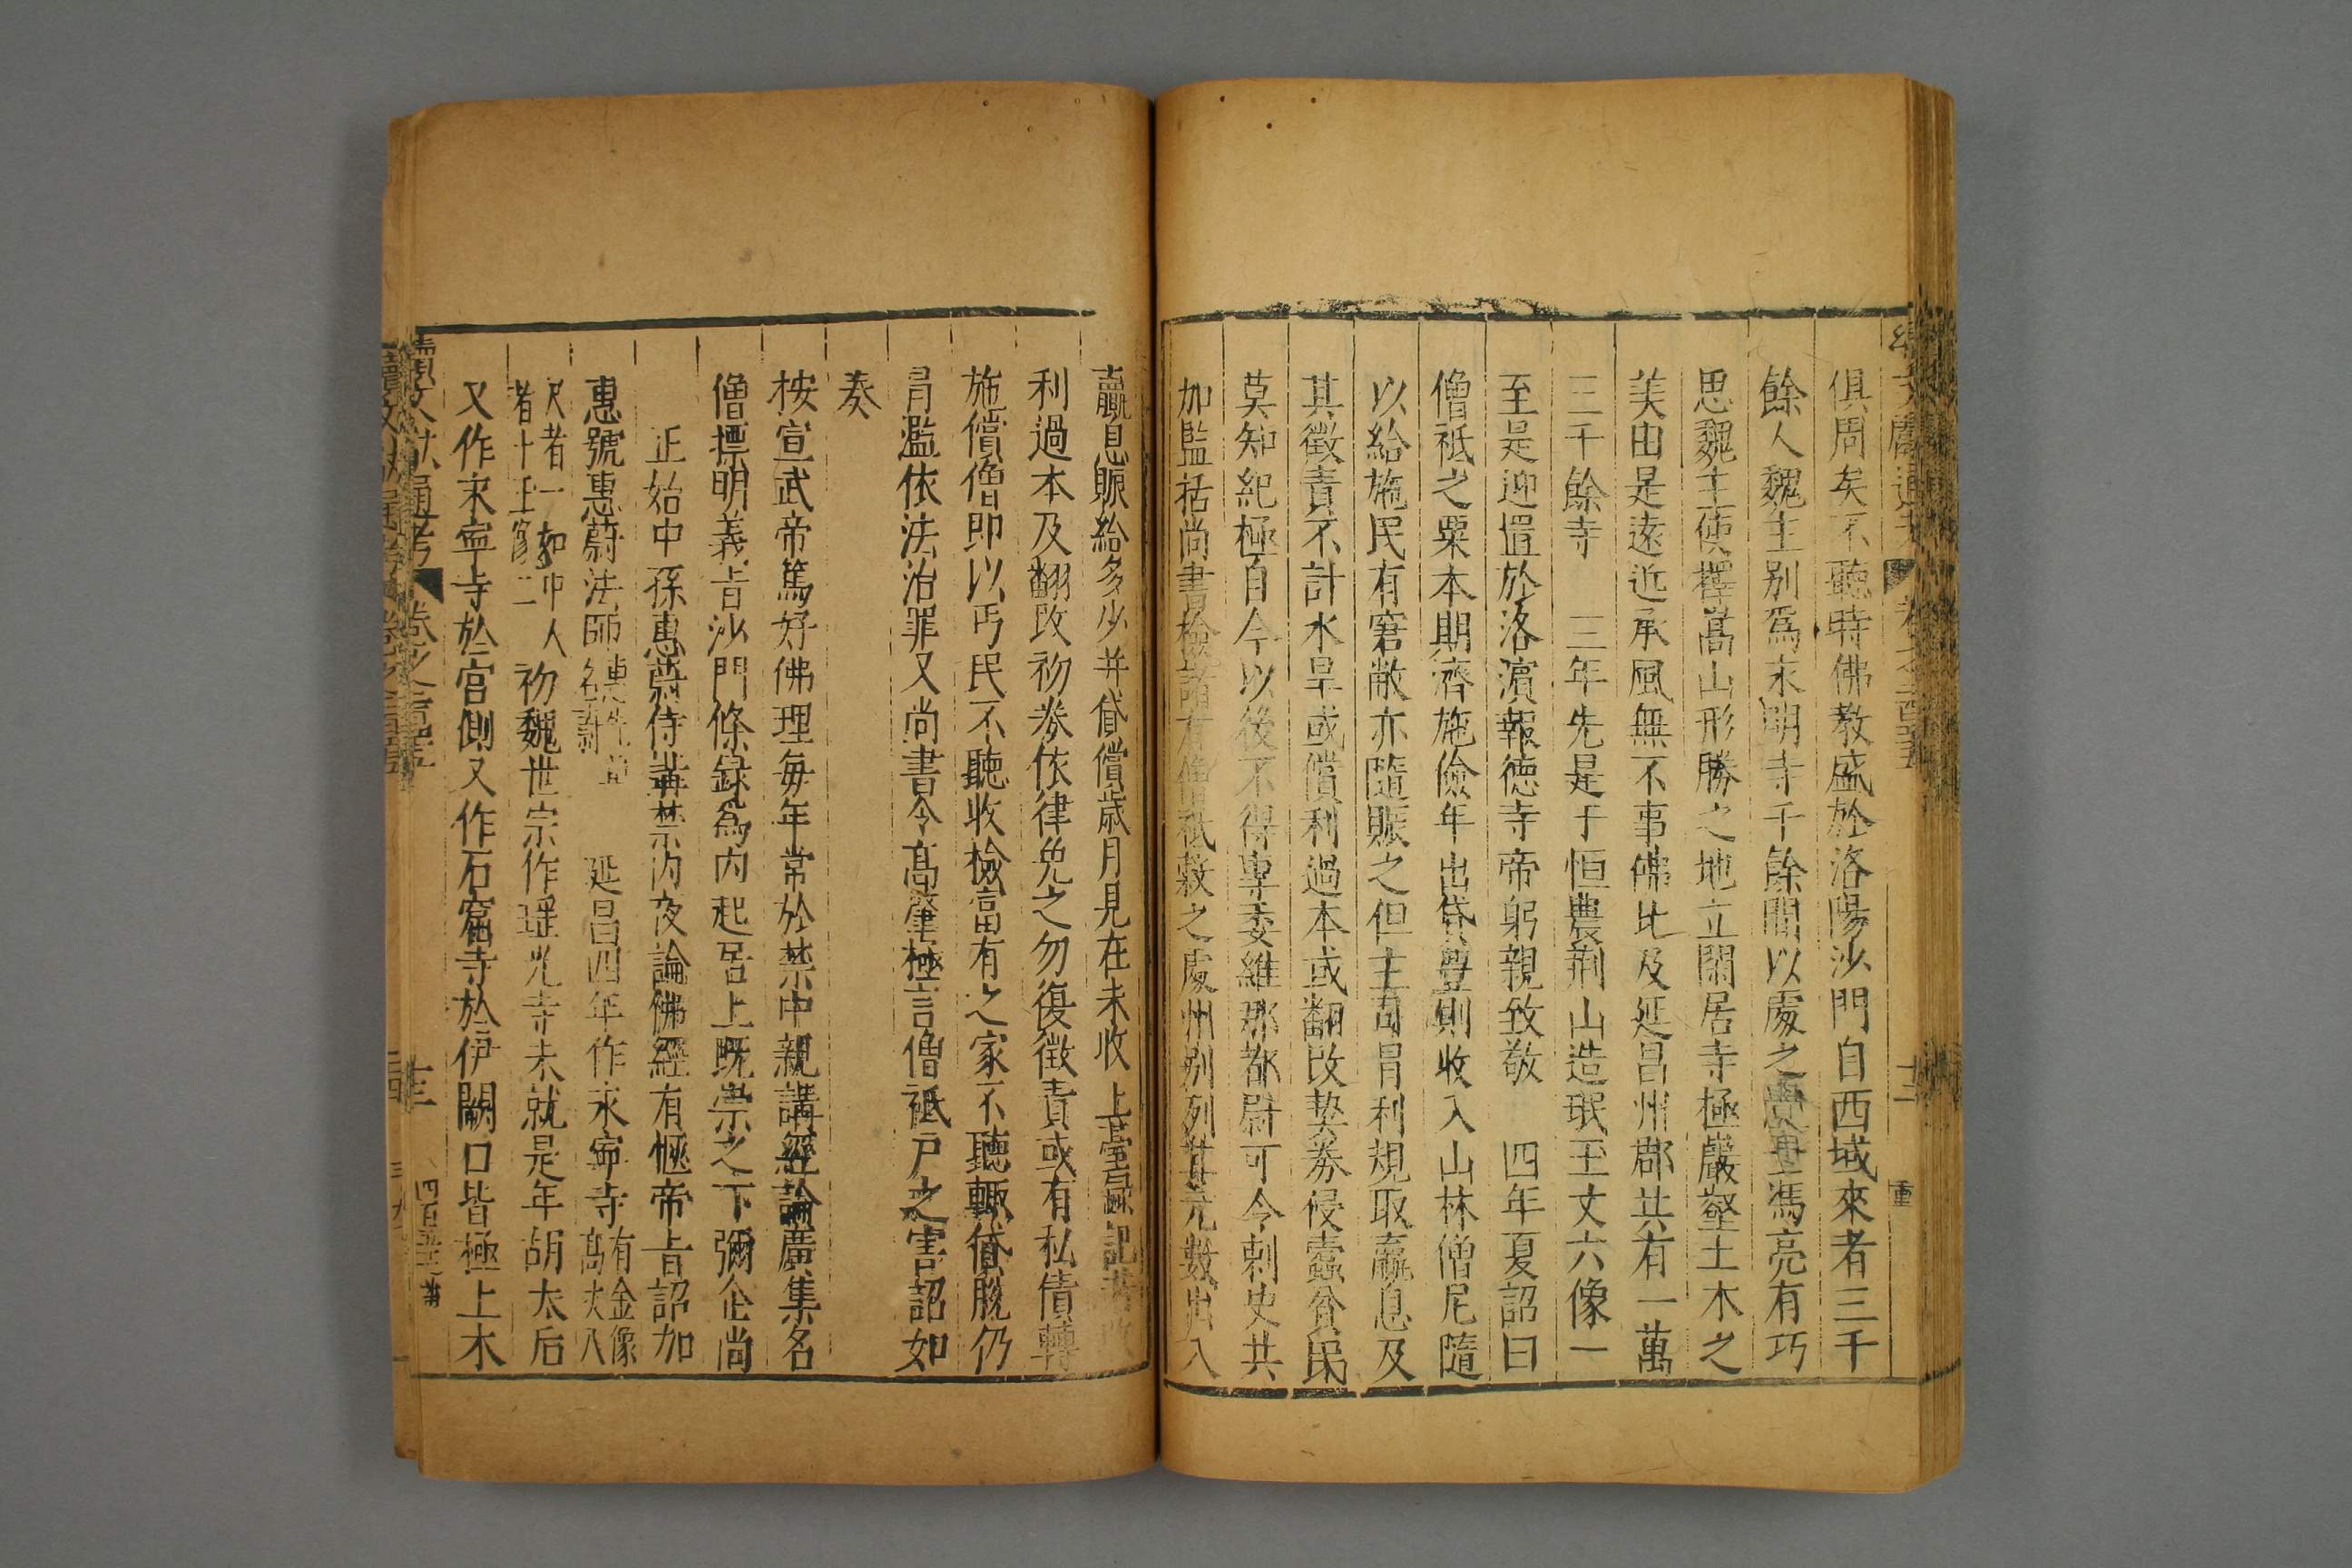 俱周矣不聽時佛教盛於洛陽沙門自西域來者三千
餘人魏主别爲永明寺千餘間以處之馮亮有巧
思魏主使擇嵩山形勝之地立閑居寺極巖壑土木之
美由是遠近承風無不事佛比及延昌州郡共有一萬
三千餘寺 三年先是于恒農荆山造珉玉丈六像一
至是迎置於洛濵報德寺帝躬親致敬 四年夏詔曰
僧祗之粟本期濟施儉年出貸豊則收入山林僧尼隨
以給施民有窘敝亦隨賑之但主司冐利規取贏息及
其徵責不計水旱或償利過本或翻改契券侵蠹貧民
莫知紀極自今以後不得專委維那都尉可令刺史共
加監括尚書檢諸有僧祗穀之處州别列其元數出入
贏息賑給多少并貸償歲月見在未收上臺録記若收
利過本及翻改初券依律免之勿復徵責或有私債轉
施償僧即以丐民不聽收檢富有之家不聽輒貸脱仍
冐濫依法治罪又尚書令髙肇極言僧祗戸之害詔如
奏
按宣武帝篤好佛理每年常於禁中親講經論廣集名
僧摽明義旨沙門條録爲内起居上既崇之下彌企尚
正始中孫惠蔚侍講禁内夜論佛經有愜帝旨詔加
惠號惠蔚法師 延昌四年作永寧寺有金像髙丈八
尺者一如中人者十玉像二初魏世宗作瑶光寺未就是年胡太后
又作永寧寺於宫側又作石窟寺於伊闕口皆極土木
續文獻通考 卷之
十三